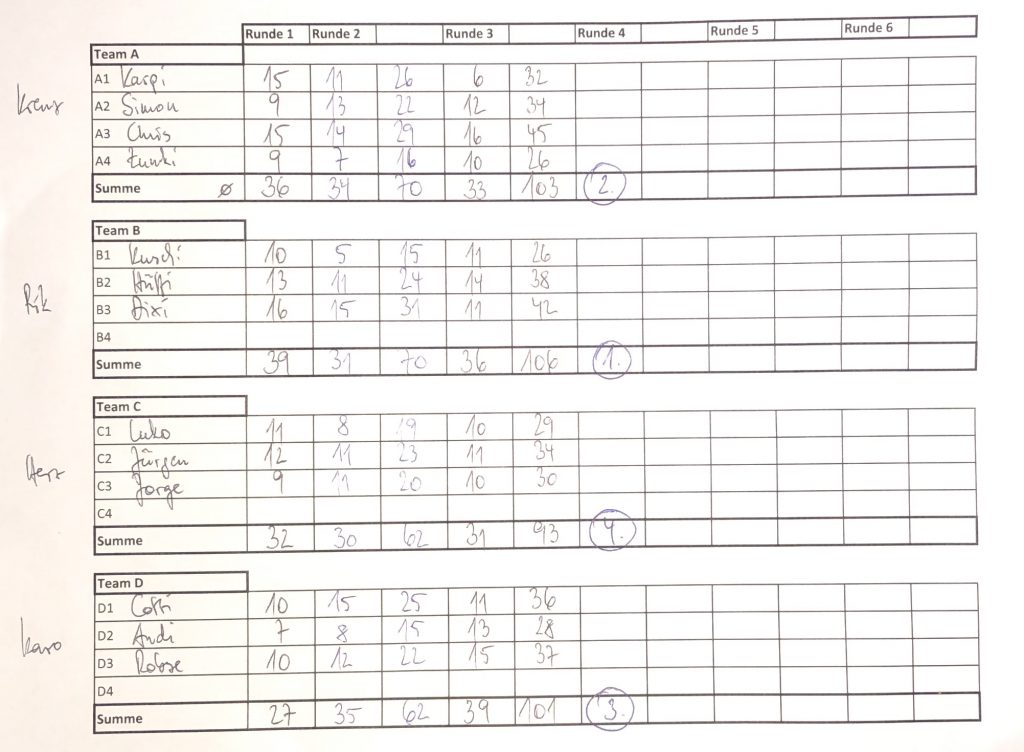 Runde 1 Runde 2 Runde 3 Runde 4 Runde 5 Runde 6
Team A
Kreuz
A1 Karpi 15 11 26 6 32
A2 Simon 9 13 22 12 34
A3 Chris 15 14 29 16 45
A4 9 7 16 10 26
Summe ø 36 34 70 33 103 2.
Team B
Pik
B1 Kuschi 10 5 15 11 26
B2 13 11 24 14 38
B3 Dixi 16 15 31 11 42
B4
Summe 39 31 70 36 106 1.
Team C
Herz
C1 11 8 19 10 29
C2 Jürgen 12 11 23 11 34
C3 Jorge 9 11 20 10 30
C4
Summe 32 30 62 31 93 4.
Team D
Karo
D1 10 15 25 11 36
D2 Andi 7 8 15 13 28
D3 10 12 22 15 37
D4
Summe 27 35 62 39 101 3.